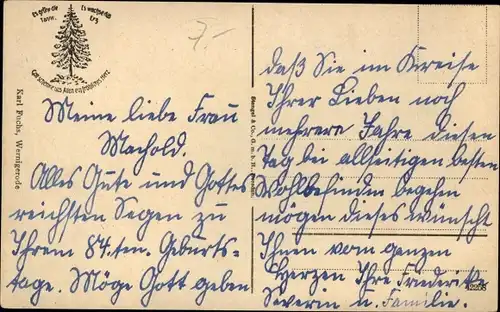 Es grüne die Tanne, Es wachse das Erz
Gott schenke uns Allen ein fröhliches Herz
7.-
Meine liebe Frau
Machold.
Alles Gute und Gottes
reichsten Segen zu
Ihrem 84.ten. Geburts-
tage. Möge Gott geben
Karl Fuchs, Wernigerode
Stengel & Co., G. m. b. H.
daß Sie im Kreise
Ihrer Lieben noch
mehrere Jahre diesen
Tag bei allseitigen besten
Wohlbefinden begehen
mögen dieses wünscht
Ihnen vom ganzen
Herzen Ihre Friederike
Severin u. Familie.
42258